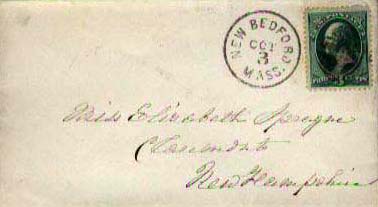 NEW BEDFORD
OCT
3
MASS.
Miss Elizabeth Sprague
Claremont
New Hampshire